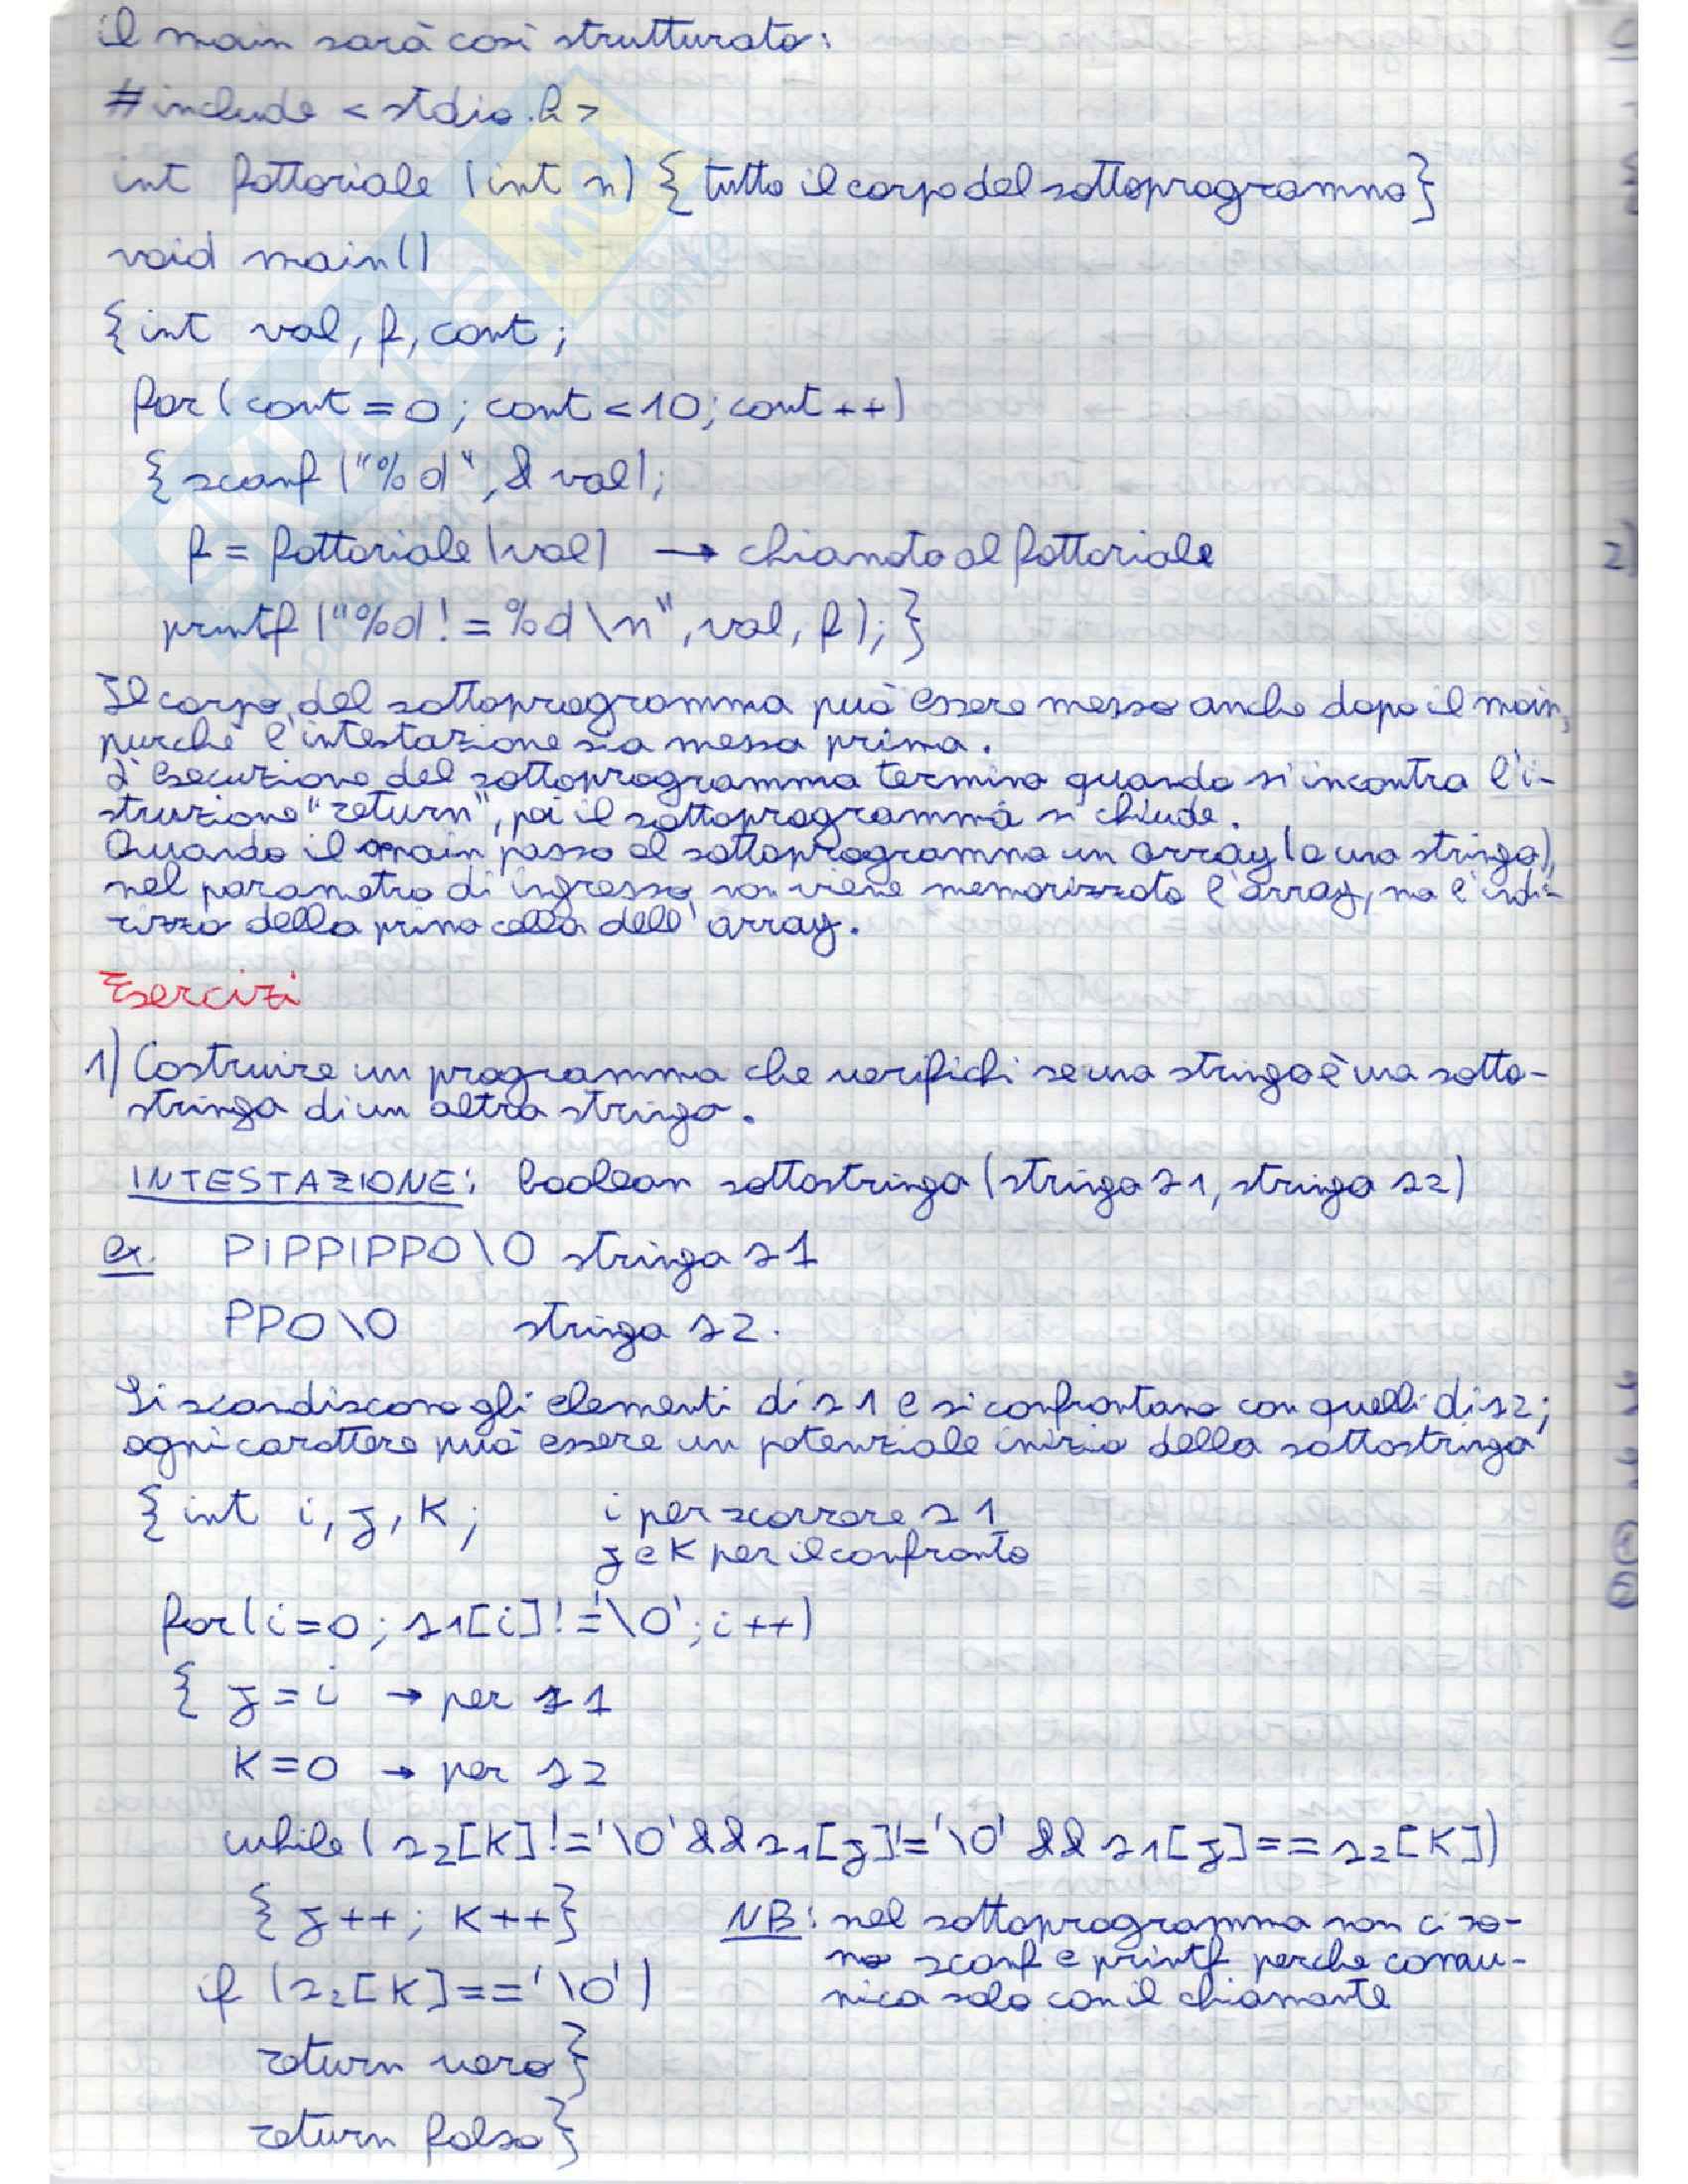 il main sarà così strutturato:
#include <stdio.h>
int fattoriale (int n) { tutto il corpo del sottoprogramma }
void main()
{ int val, f, cont;
for (cont=0; cont<10; cont++)
{ scanf ("%d", & val);
f = fattoriale (val) → chiamata al fattoriale
printf ("%d! = %d \n", val, f); }
Il corpo del sottoprogramma può essere messo anche dopo il main,
purché l'intestazione sia messa prima.
L'esecuzione del sottoprogramma termina quando si incontra l'i-
struzione "return", poi il sottoprogramma si chiude.
Quando il main passa al sottoprogramma un array (o una stringa),
nel parametro di ingresso non viene memorizzato l'array, ma l'indi-
rizzo della prima cella dell'array.
Esercizi
1) Costruire un programma che verifichi se una stringa è una sotto-
stringa di un altra stringa.
INTESTAZIONE: boolean sottostringa (stringa s1, stringa s2)
ex. PIPPIPPO\0 stringa s1
PPO\0 stringa s2.
Si scandiscono gli elementi di s1 e si confrontano con quelli di s2;
ogni carattere può essere un potenziale inizio della sottostringa
{ int i, j, k; i per scorrere s1
j e k per il confronto
for (i=0; s1[i]!='\0'; i++)
{ j=i → per s1
k=0 → per s2
while ( s2[k]!='\0' && s1[j]!='\0' && s1[j]==s2[k])
{ j++; k++}
NB: nel sottoprogramma non ci so-
no scanf e printf perche comu-
nica solo con il chiamante
if (s2[k]=='\0')
return vero}
return falso}
2)